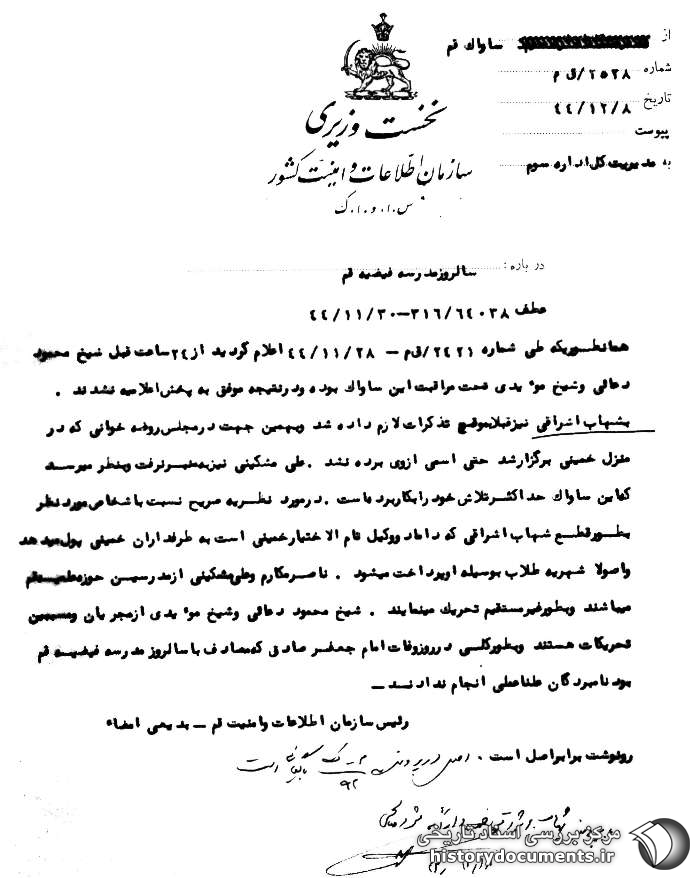 از ساواك قم
شماره ۲۵۳۸/ق م
تاریخ ۴۴/۱۲/۸
پیوست
به مدیریت کل اداره سوم
نخست وزیری
سازمان اطلاعات و امنیت کشور
س.ا.و.ا.ک
درباره: سالروز مدرسه فیضیه قم
عطف ۳۱۶/۶۴۰۳۸-۴۴/۱۱/۳۰
همانطوریکه طی شماره ۲۴۲۱/ق م - ۴۴/۱۱/۲۸ اعلام گردید از ۲۴ ساعت قبل شیخ محمود
دعائی وشیخ موء یدی تحت مراقبت این ساواك بوده ودرنتیجه موفق به پخش اعلامیه نشدند .
بشهاب اشراقی نیزقبلا بموقع تذکرات لازم داده شد وبهمین جهت درمجلس روضه خوانی که در
منزل خمینی برگزارشد حتی اسمی ازوی برده نشد . علی مشکینی نیزبه منبرنرفت وبنظر میرسد
که این ساواك حداکثرتلاش خود رابکاربرده است . درمورد نظریه صریح نسبت باشخاص مورد نظر
بطورقطع شهاب اشراقی که داماد ووکیل تام الاختیارخمینی است به طرفداران خمینی پول میدهد
واصولا شهریه طلاب بوسیله اوپرداخت میشود . ناصرمکارم وعلی مشکینی ازمدرسین حوزه علمیه قم
میباشند وبطورغیرمستقیم تحریك مینمایند . شیخ محمود دعائی وشیخ موء یدی ازمجریان ومسببین
تحریکات هستند وبطورکلی درروزوفات امام جعفرصادق که مصادف با سالروز مدرسه فیضیه قم
بود نامبردگان علنا عملی انجام ندادند -
رئیس سازمان اطلاعات وامنیت قم - بدیعی امضاء
رونوشت برابراصل است . اصل در پرونده
است
مرکز بررسی اسناد تاریخی
historydocuments.ir